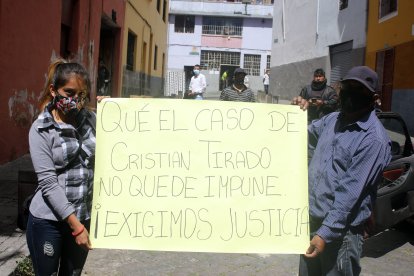 QUÉ EL CASO DE
CRISTIAN TIRADO
NO QUEDE IMPUNE.
¡EXIGIMOS JUSTICIA